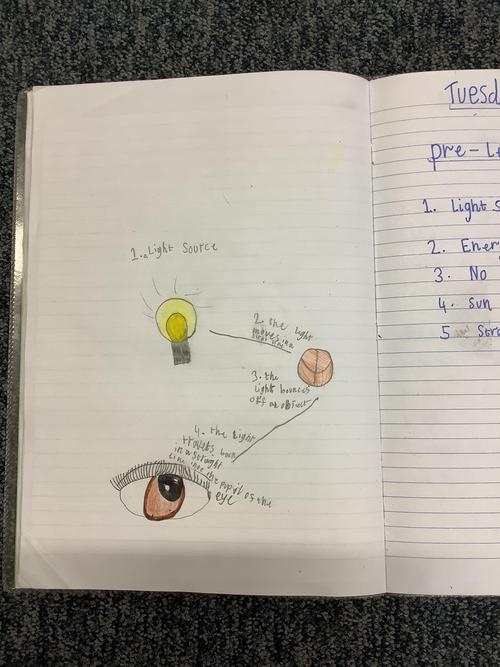 1. a Light Source
2. the light
moves in a
line
3. the
light bounces
off an object
4. the light
travels back
in a straight
line into the pupil of the
eye
Tuesd
pre-Le
1. Light s
2. Ener
3. No
4. Sun
5 Stra